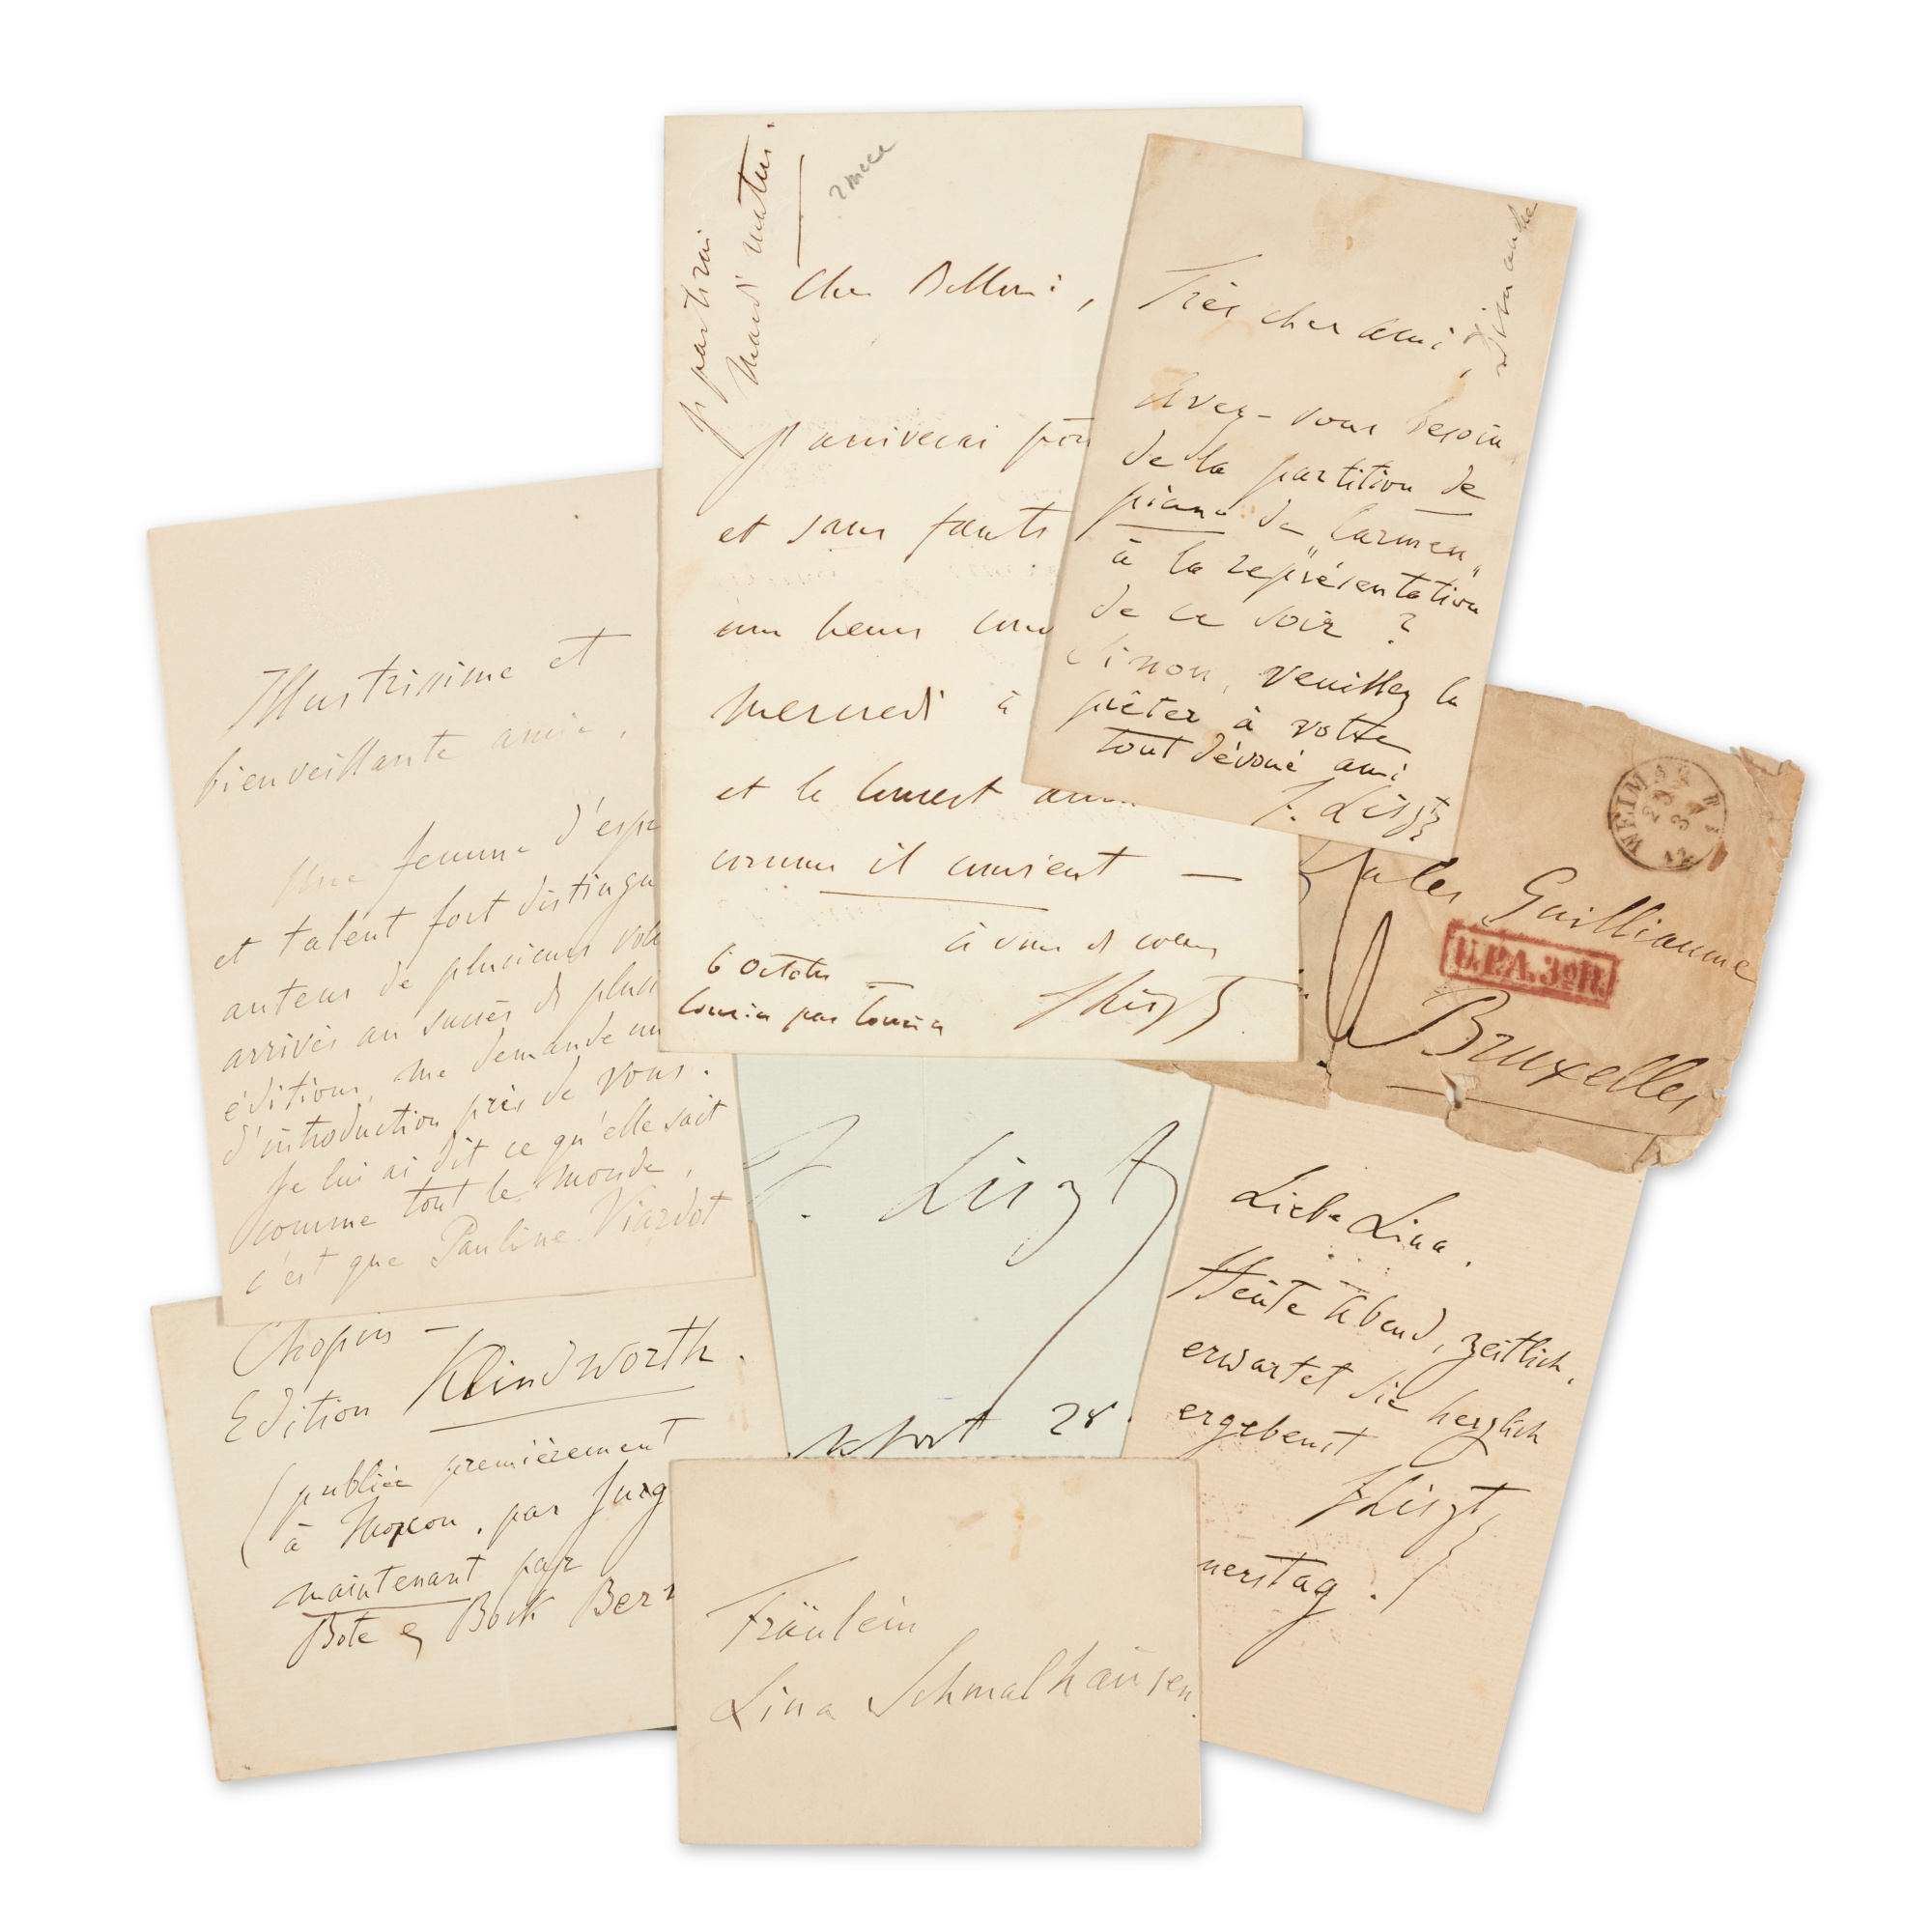 je partirai
Mardi matin.
Cher Belloni,
J'arriverai
et sans faute
une heure
Mercredi à
et le concert
comme il convient —
à vous de cœur
6 Octobre
FLiszt
Dimanche
Très cher ami,
Avez-vous besoin
de la partition de
piano de „Carmen"
à la représentation
de ce soir ?
Sinon, veuillez la
prêter à votre
tout dévoué ami
F. Liszt
Illustrissime et
bienveillante amie,
Une femme d'espr
et talent fort distingu
auteur de plusieurs vol
arrivés au succès de plusi
éditions, me demande un
d'introduction près de vous.
Je lui ai dit ce qu'elle sait
comme tout le monde,
c'est que Pauline Viardot
WEIMAR
Jules Guilliaume
U.P.A. 3º R.
Bruxelles
F. Liszt
28.
Liebe Lina.
Heute Abend, zeitlich,
erwartet Sie herzlich
ergebenst
FLiszt
nerstag.
Chopin –
Edition Klindworth.
(publiée premièrement
à Moscou, par Jurg
maintenant par
Bote & Bock Ber
Fräulein
Lina Schmalhausen.